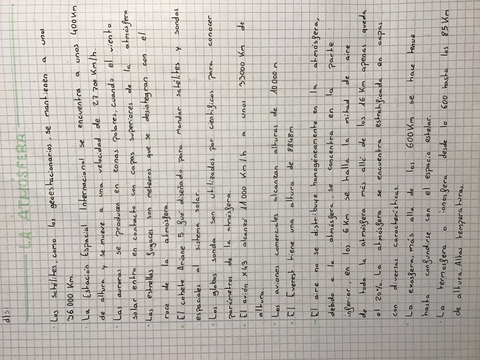 LA ATMÓSFERA
· Los satélites, como los geoestacionarios, se mantienen a unos
36000 Km.
· La Estación Espacial Internacional se encuentra a unos 400 Km
de altura y se mueve a una velocidad de 27.700 Km/h.
· Las auroras se producen en zonas polares, cuando el viento
solar entra en contacto con capas superiores de la atmósfera
· Las estrellas fugaces son meteoros que se desintegran con el
roce de la atmósfera.
· El cohete Ariane 5 fue diseñado para mandar satélites y sondas
espaciales al sistema solar.
· Los globos sonda son utilizados por científicos para conocer
parámetros de la atmósfera.
· El avión X43 alcanzó 11000 Km/h a unos 33000 Km de
altura.
· Los aviones comerciales alcanzan alturas de 10.000 m
· El Everest tiene una altura de 8848m
· El aire no se distribuye homogéneamente en la atmósfera,
debido a la atmósfera se concentra en la parte
inferior, en los 6 Km se halla la mitad de aire
de toda la atmósfera más allá de los 16 Km apenas queda
el 20%. La atmósfera se encuentra estratificada en capas
con diversas características.
· La exosfera, más allá de los 600 Km se hace tenue
hasta confundirse con el espacio estelar.
· La termosfera o ionosfera desde los 600 hasta los 85 Km
de altura. Altas temperaturas.